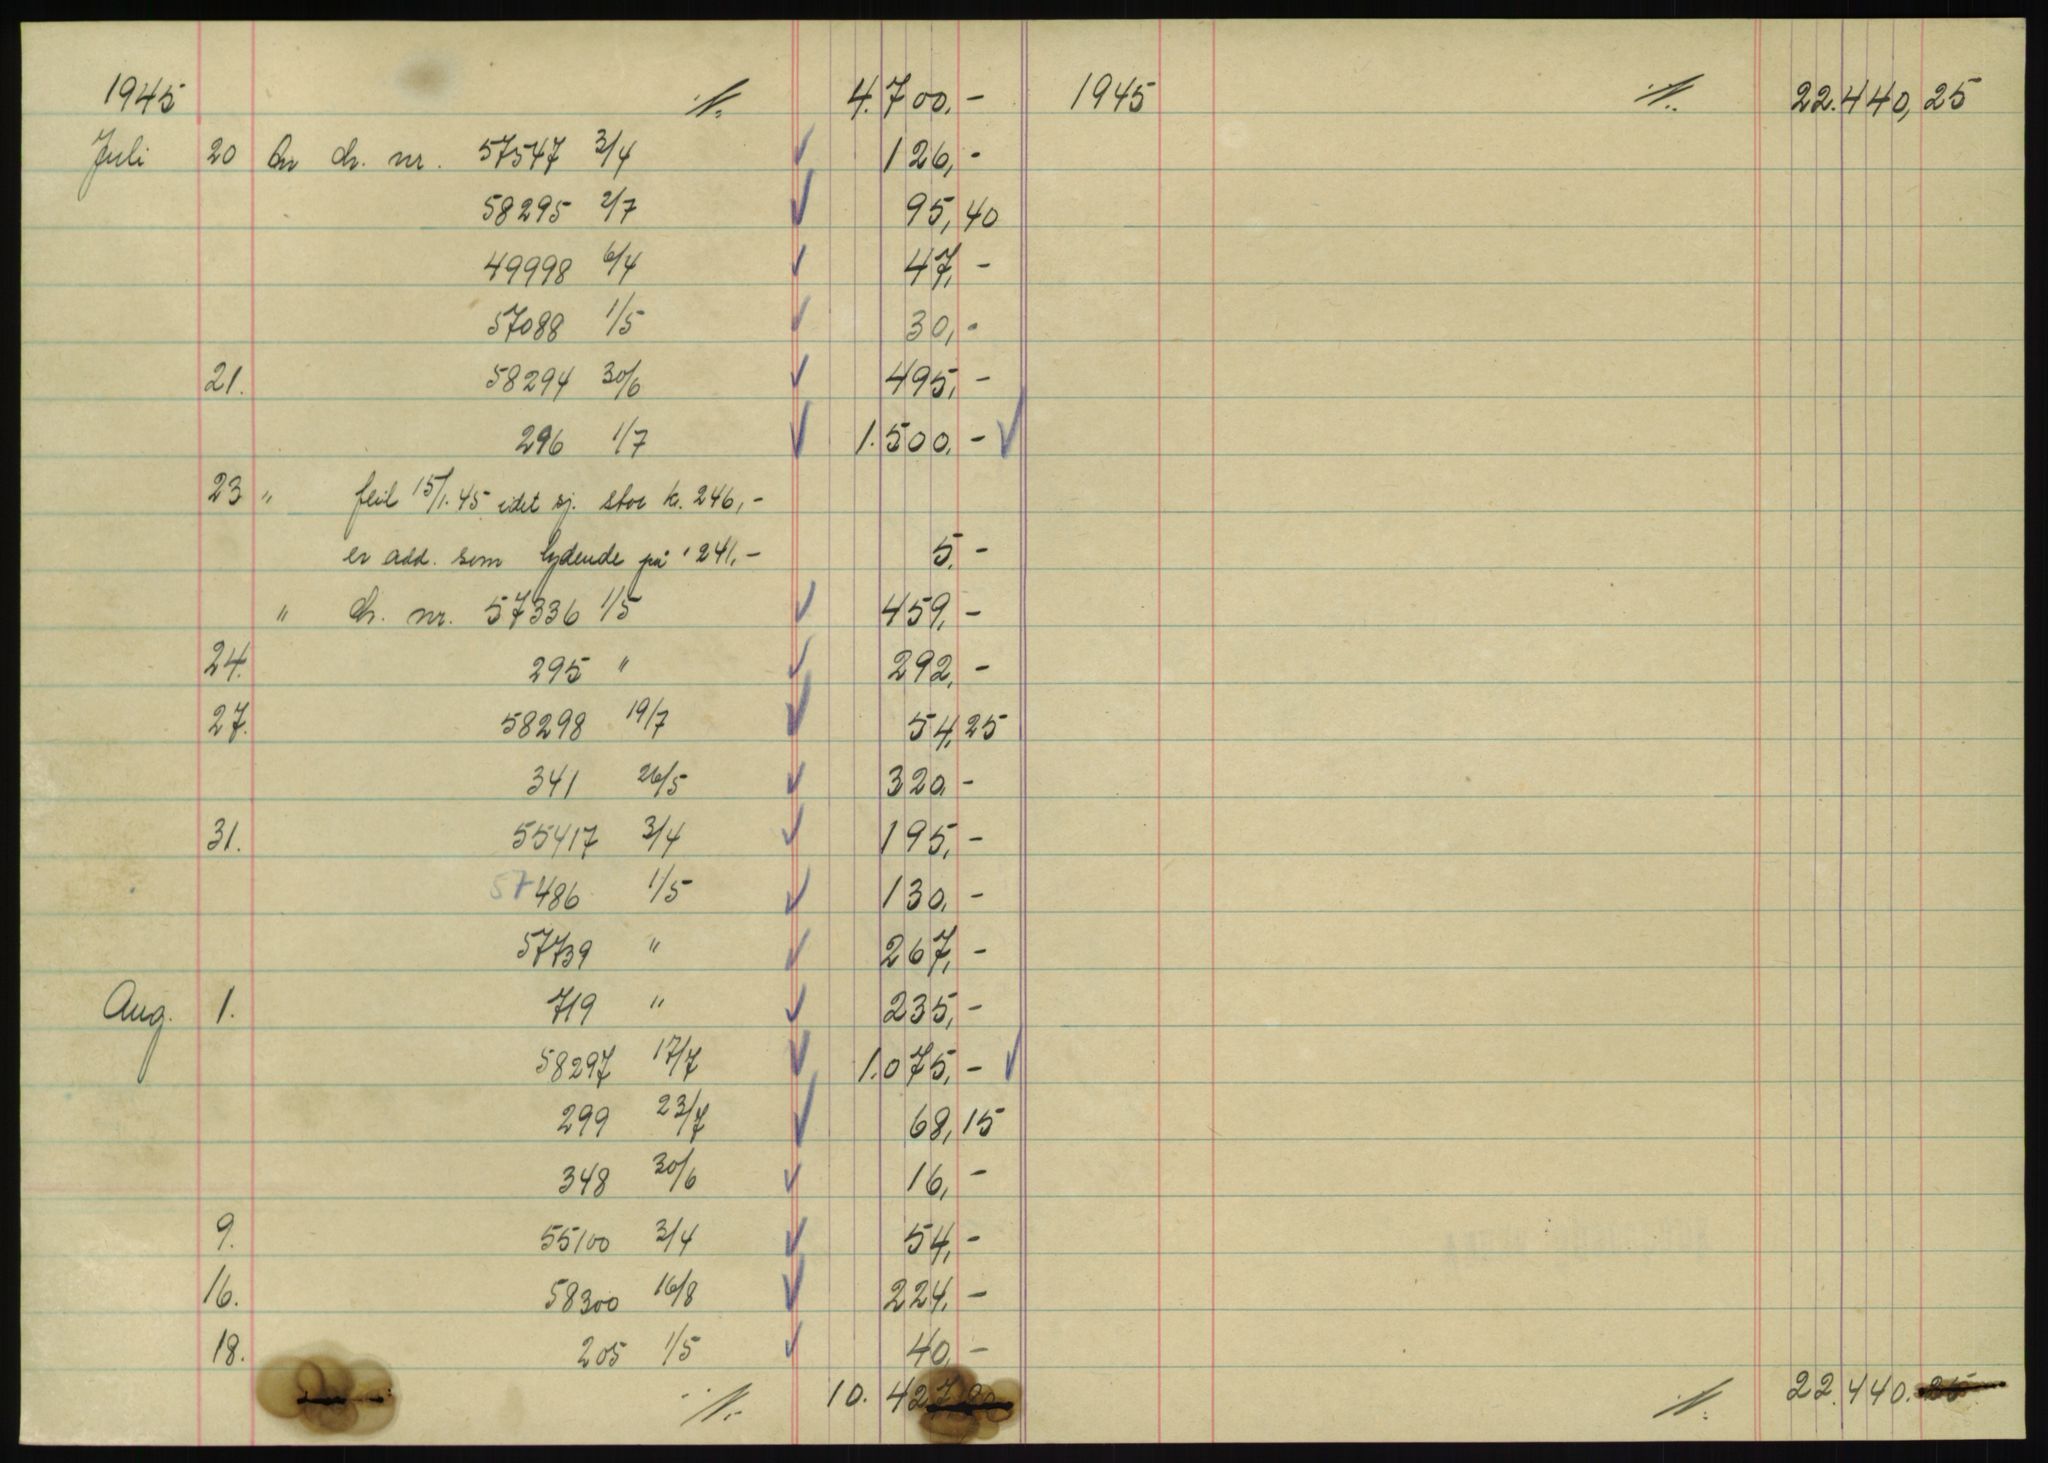 1945 ·/. 4.700,- 1945 ·/. 22.440,25
Juli 20 An ch. nr. 57547 3/4 126,-
58295 2/7 95,40
49998 6/4 47,-
57088 1/5 30,-
21. 58294 30/6 495,-
296 1/7 1.500,-
23 " feil 15/1.45 idet sj. stor kr. 246,-
er add. som lydende på " 241,- 5,-
" ch. nr. 57336 1/5 459,-
24. 295 " 292,-
27. 58298 19/7 54,25
341 26/5 320,-
31. 55417 3/4 195,-
57486 1/5 130,-
57739 " 267,-
Aug. 1. 719 " 235,-
58297 17/7 1.075,-
299 23/7 68,15
348 30/6 16,-
9. 55100 3/4 54,-
16. 58300 16/8 224,-
18. 205 1/5 40,-
·/. 10.427,80 ·/. 22.440.25